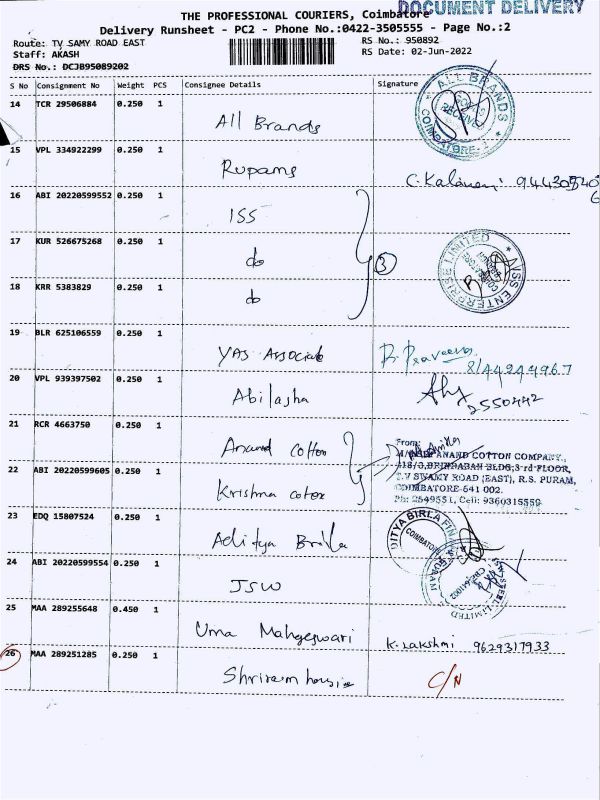 DOCUMENT DELIVERY
THE PROFESSIONAL COURIERS, Coimbatore
Delivery Runsheet - PC2 - Phone No.:0422-3505555 - Page No.:2
Route: TV SAMY ROAD EAST RS No.: 950892
Staff: AKASH RS Date: 02-Jun-2022
DRS No.: DCJB95089202
S No Consignment No Weight PCS Consignee Details Signature
14 TCR 29506884 0.250 1 All Brands
ALL BRANDS RECEIVED COIMBATORE-2
15 VPL 334922299 0.250 1 Rupams
16 ABI 20220599552 0.250 1 ISS
17 KUR 526675268 0.250 1 do 3
ENTERPRISE LIMITED
18 KRR 5383829 0.250 1 do
19 BLR 625106559 0.250 1 YAS Associate
20 VPL 939397502 0.250 1 Abilasha 2550442
21 RCR 4663750 0.250 1 Anand Cotton
From:
ANAND COTTON COMPANY,
418/3,BRINDABAN BLDG;3-rd FLOOR,
T.V SWAMY ROAD (EAST), R.S. PURAM,
COIMBATORE-641 002.
Ph: 2549551, Cell: 9360315559
22 ABI 20220599605 0.250 1 Krishna coton
23 EDQ 15807524 0.250 1 Aditya Birla
ADITYA BIRLA FIN
COIMBATORE
24 ABI 20220599554 0.250 1 JSW
25 MAA 289255648 0.450 1 Uma Maheswari K. Lakshmi 9629317933
26 MAA 289251285 0.250 1 Shriram housie C/N